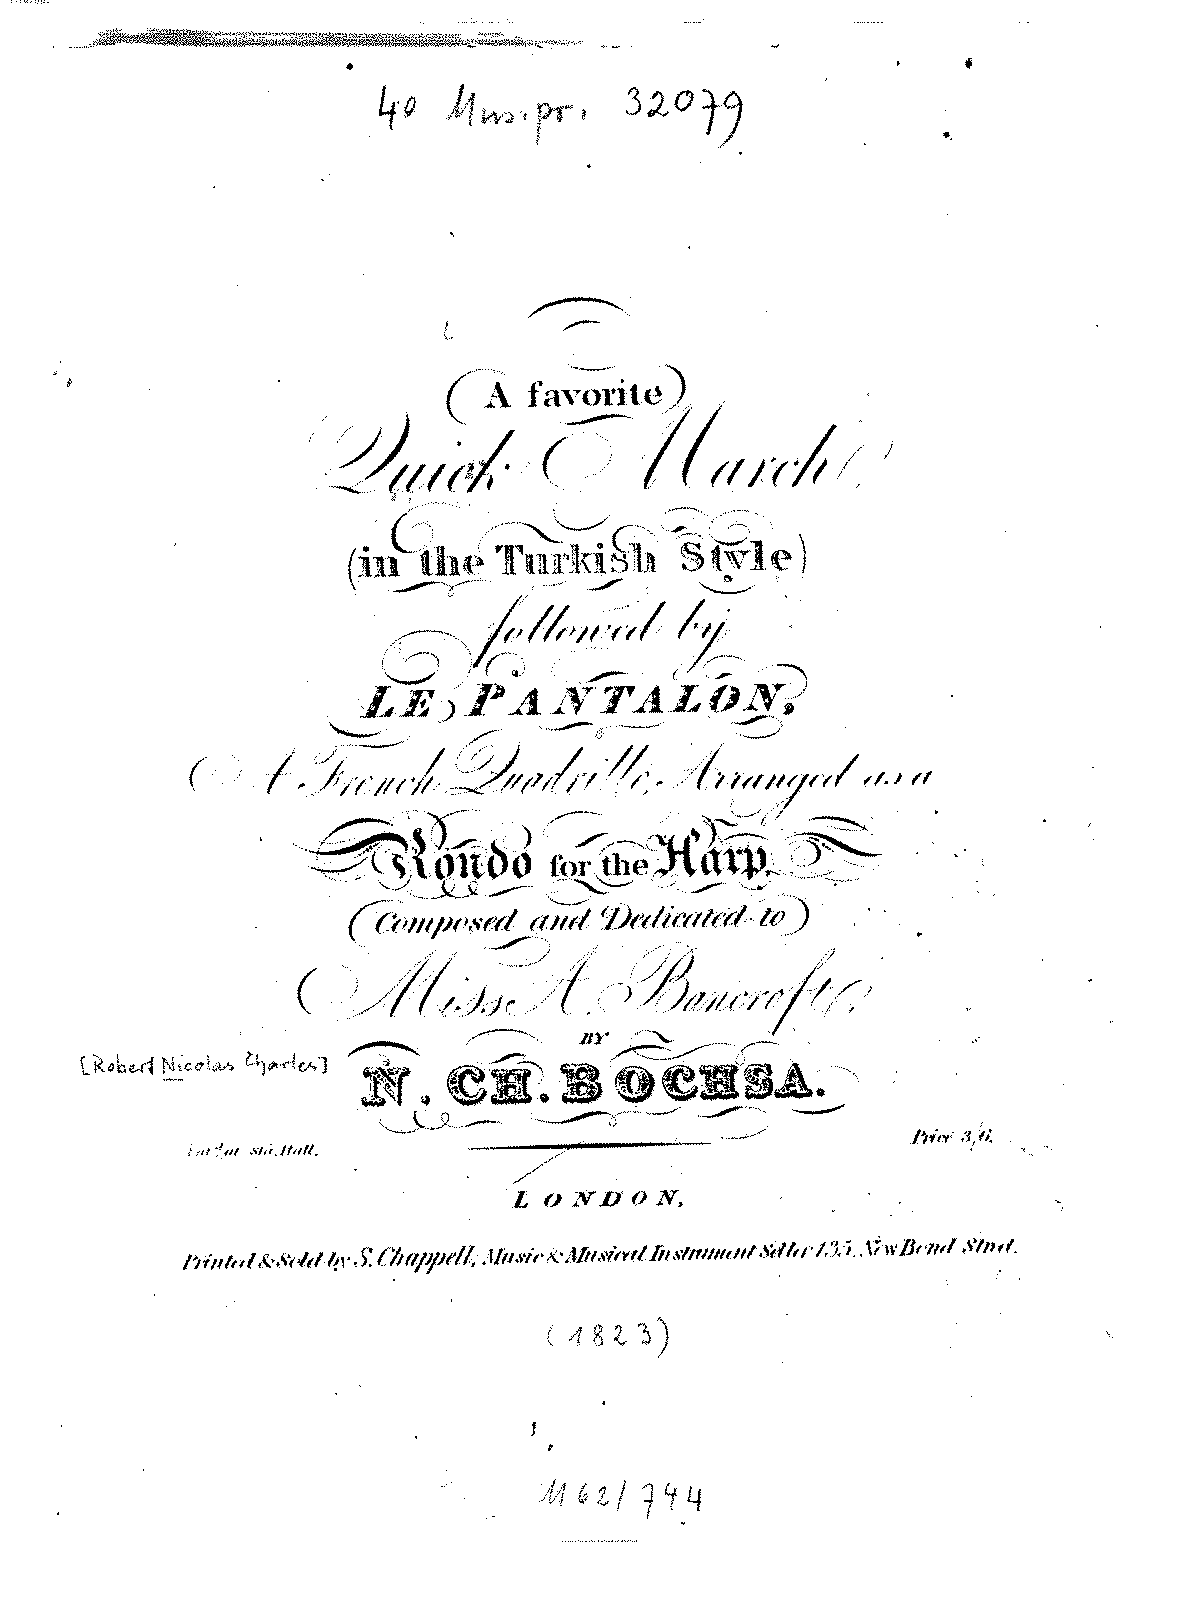 40 Mus.pr. 32079
A favorite
Quick March
(in the Turkish Style)
followed by
LE PANTALON,
A French Quadrille, Arranged as a
Rondo for the Harp,
Composed and Dedicated to
Miss A. Bancroft,
BY
[Robert Nicolas Charles]
N. CH. BOCHSA.
Sta. Hall.
Price 3/6.
LONDON,
Printed & Sold by S. Chappell, Music & Musical Instrument Seller 135, New Bond Street.
(1823)
M 62/744